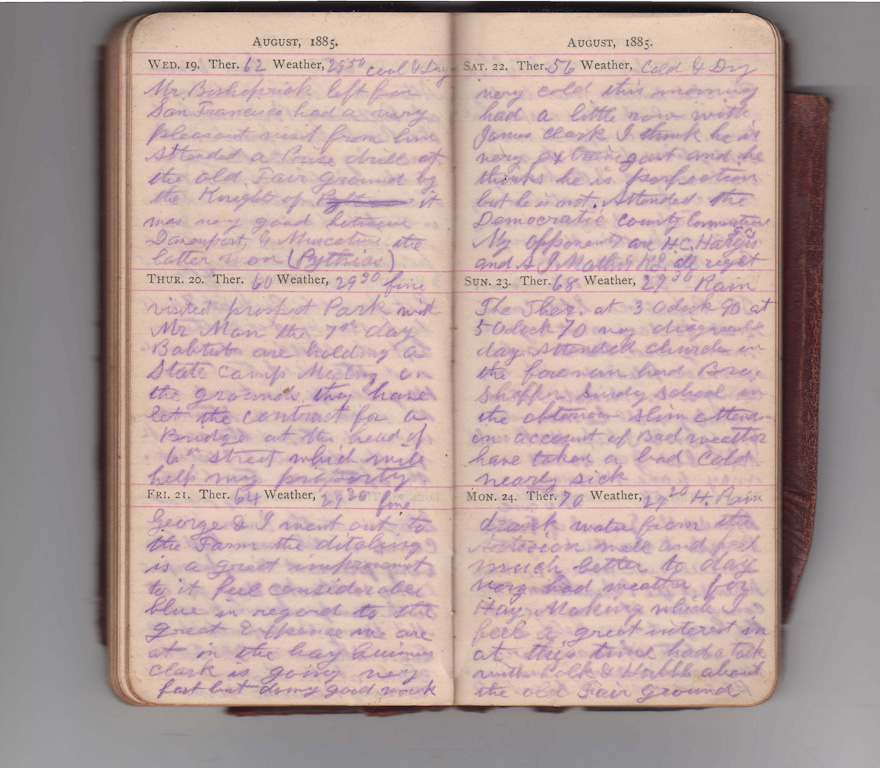 AUGUST, 1885.
WED. 19. Ther. 62 Weather, 29 50 cool & Dry
Mr. left for
San Francisco had a very
pleasant visit from him
Attended a Prise drill at
the old Fair ground by
the Knight of it
was very good between
Davenport, & Muscatine the
latter won (Pythias)
THUR. 20. Ther. 60 Weather, 29 30 fine
visited prospect Park with
Mr Man the 7th day
Babtist are holding a
State Camp Meeting on
the grounds they have
let the contract for a
Bridge at the head of
6th street which will
help my
FRI. 21. Ther. 64 Weather, 29 30 fine
George & I went out to
the Farm the ditching
is a great
to it feel considerabel
blue in regard to the
great Expence we are
at in the hay
Clark is going very
fast but doing good work
AUGUST, 1885.
SAT. 22. Ther. 56 Weather, Cold & Dry
very cold this morning
had a little row with
James Clark I think he is
very and he
thinks he is perfection
but he is not. Attended the
Democratic county
My opponents are H.C.
and S J all
SUN. 23. Ther. 68 Weather, 29 30 Rain
The Ther. at 3 Oclock 90 at
5 Oclock 70 very
day Attended church in
the forenoon herd Bro.
Sunday school in
the afternoon Slim
on account of Bad weather
have taken a bad cold
nearly sick
MON. 24. Ther. 70 Weather, 29 20 H. Rain
drank water from the
well and feel
much better to day
very bad weather for
Hay Making which I
feel a great interest in
at this time had a talk
with & about
the old Fair ground